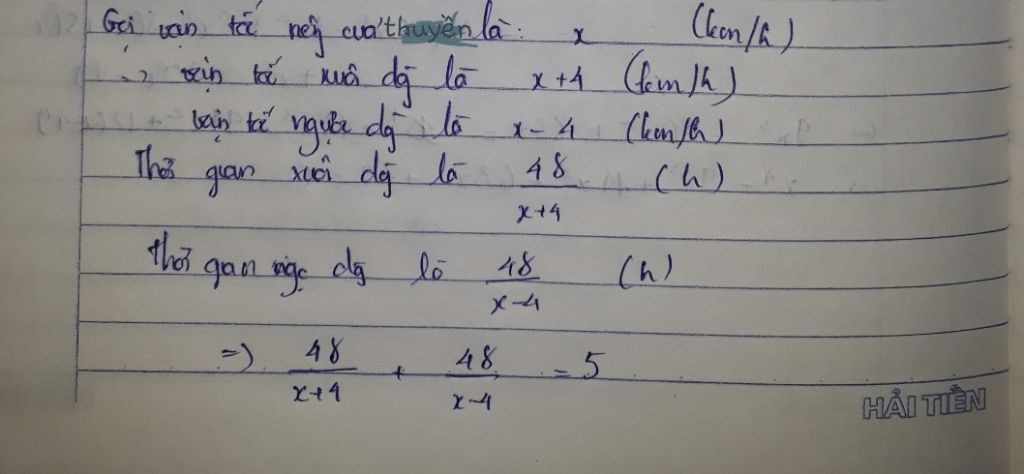 Gọi vận tốc riêng của thuyền là: x (km/h)
=> vận tốc xuôi dg là x+4 (km/h)
vận tốc ngược dg là x-4 (km/h)
Thời gian xuôi dg là 48/(x+4) (h)
Thời gan ngc dg là 48/(x-4) (h)
=> 48/(x+4) + 48/(x-4) = 5
HẢI TIẾN